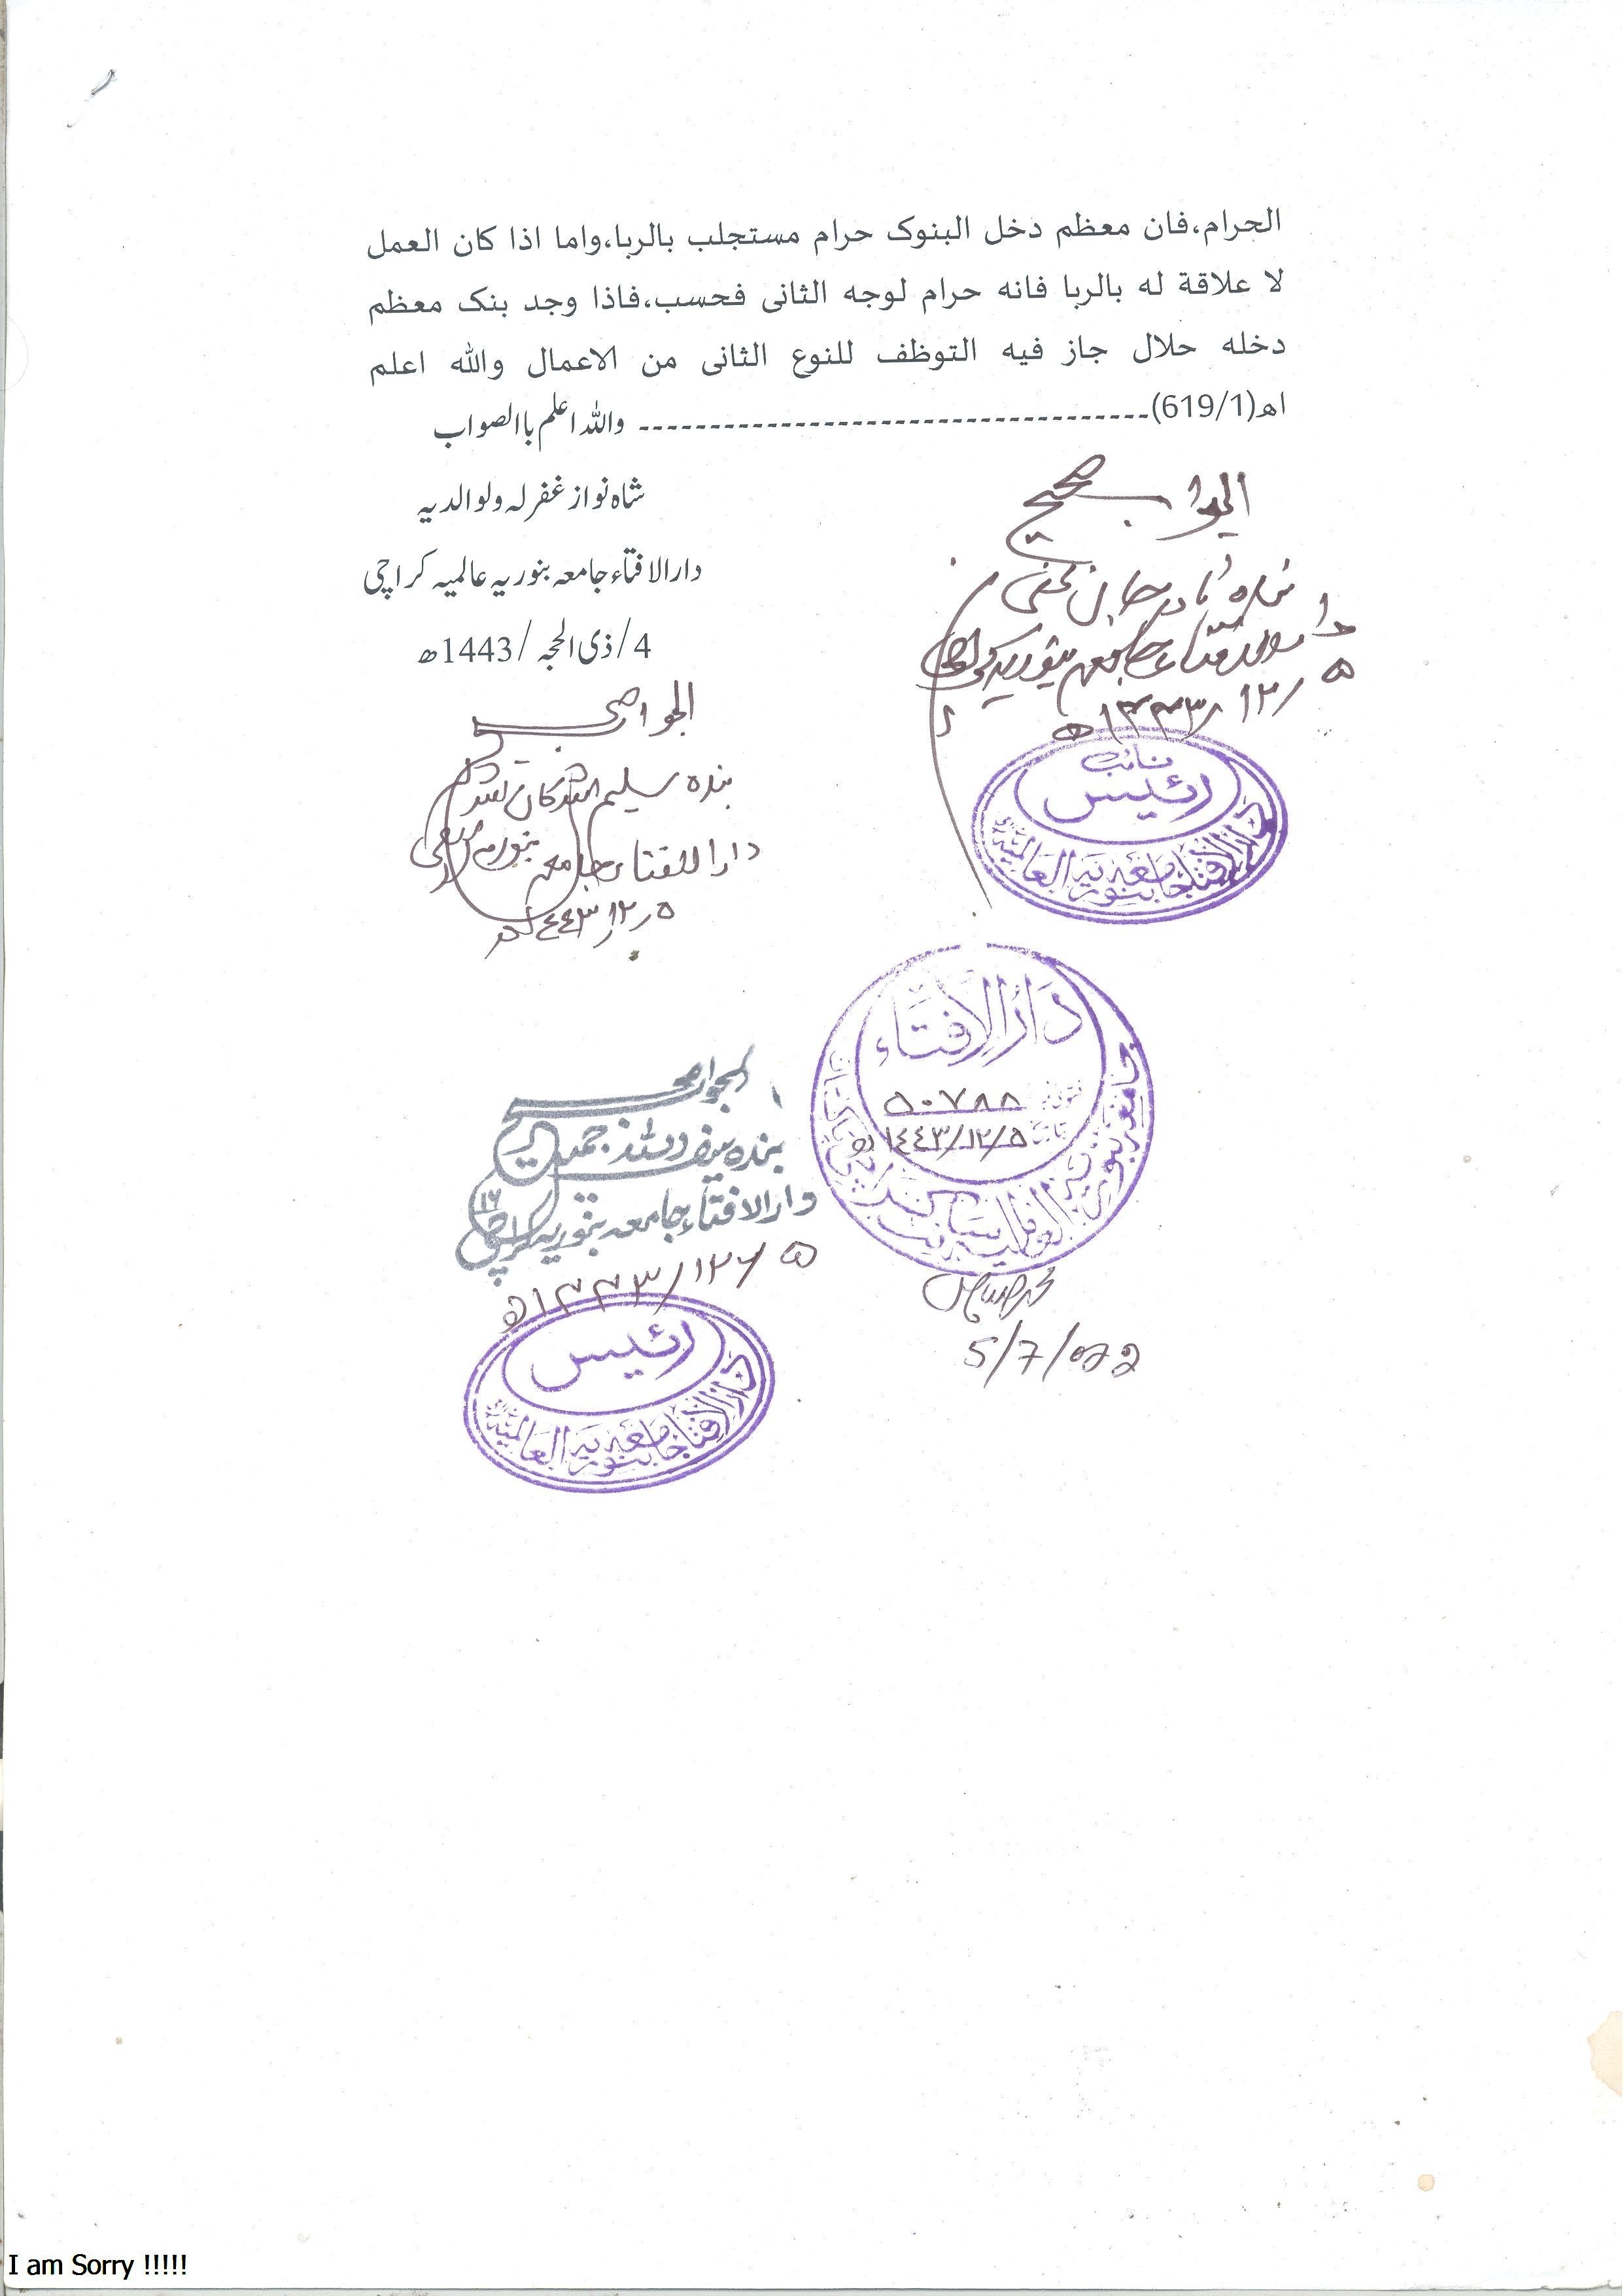 الحرام،فان معظم دخل البنوک حرام مستجلب بالربا،واما اذا کان العمل
لا علاقة له بالربا فانه حرام لوجه الثانی فحسب،فاذا وجد بنک معظم
دخله حلال جاز فیه التوظف للنوع الثانی من الاعمال والله اعلم
اھ(619/1)------------------------------------ واللہ اعلم باالصواب
شاہ نواز غفرلہ ولوالدیہ
دارالافتاء جامعہ بنوریہ عالمیہ کراچی
4/ذی الحجہ/1443ھ
الجواب صحیح
بندہ نادر جان
دارالافتاء جامعہ بنوریہ کراچی
۵/۱۲/۱۴۴۳ھ
نائب
رئیس
دارالافتاء جامعہ بنوریہ العالمیة
الجواب صحیح
بندہ سلیم اللہ
دارالافتاء جامعہ بنوریہ
۵/۱۲/۱٤٤۳ھ
دَارُالاِفتَاء
۵۰۷۸۸
۵/۱۲/۱٤٤۳ھ
الجواب صحیح
بندہ سیف اللہ جمیل
دارالافتاء جامعہ بنوریہ کراچی
۵/۱۲/۱۴۴۳ھ
رئیس
دارالافتاء جامعہ بنوریہ العالمیة
5/7/022
I am Sorry !!!!!